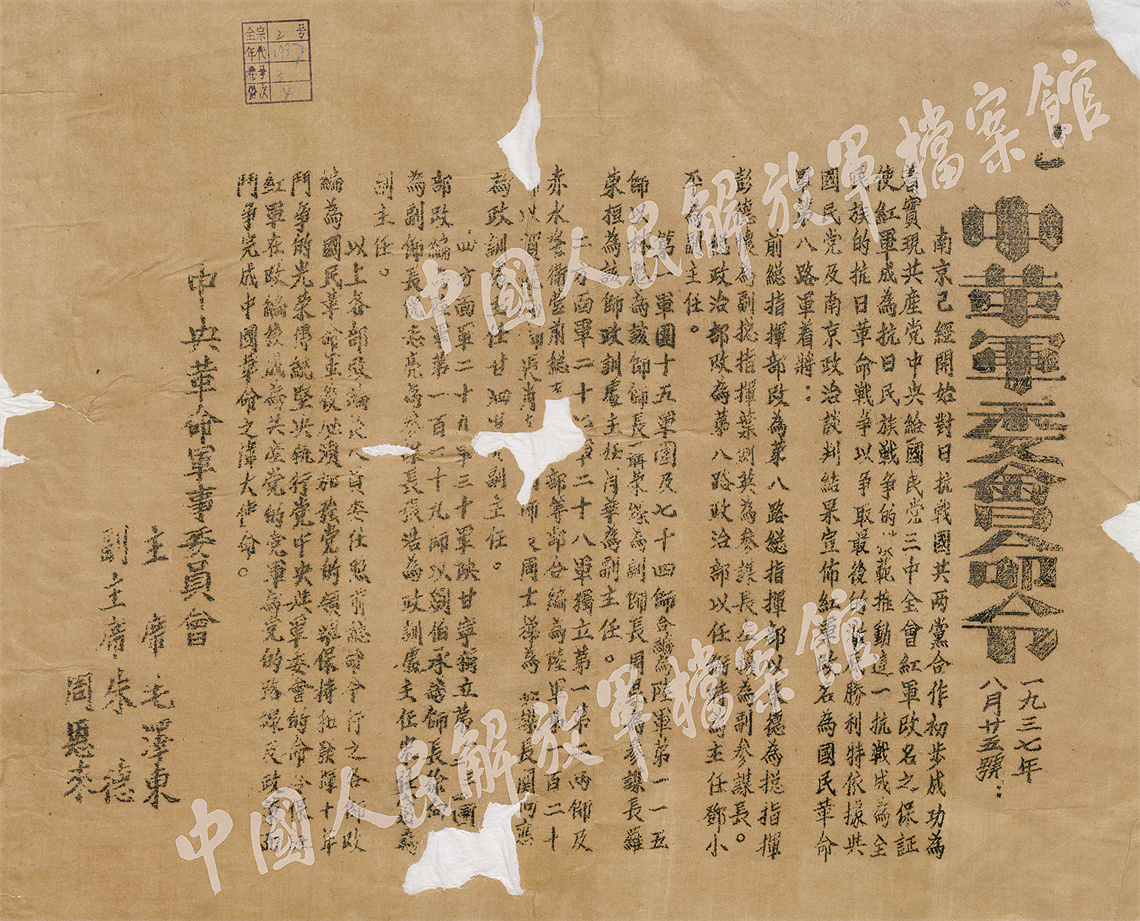 中華軍委會命令
一九三七年
八月廿五號：
南京已經開始對日抗戰國共兩黨合作初步成功為
着實現共産党中央給國民党三中全會紅軍改名之保証
使紅軍成為抗日民族戰爭的範推動這一抗戰成為全
民族的抗日革命戰爭以爭取最後的勝利特依據共
國民党及南京政治談判結果宣佈紅軍改名為國民革命
軍第八路軍着將：
前總指揮部改為第八路總指揮部以德為總指揮
彭德懷為副總指揮葉剑英為參謀長左權為副參謀長。
總政治部改為第八路政治部以任弼時為主任鄧小
平為副主任。
第一軍團十五軍團及七十四師合編為陸軍第一一五
師以林為該師師長聶荣臻為副師長周昆為參謀長羅
荣桓為該師政訓處主任肖華為副主任。
二方面軍二十軍二十八軍獨立第一二两師及
赤水警衛營前總部等部合編為陸軍百二十
師以賀師肖師周士第為長関向應
為政訓主任甘泗副主任。
四方面軍二十九軍三十軍陝甘寧獨立第團
部改編第一百二十九師以劉伯承為師長徐向
為副師長志亮為參謀長張浩為政訓處主任為
副主任。
以上各部改編後人員委任照前總命令行之各師改
編為國民革命軍後必須加强党的領導保持和發揮十年
鬥爭的光荣傳統坚决執行党中央與軍委會的命令保
紅軍在改編後成為共產党的党軍為党的路線及政策而
鬥爭完成中國革命之偉大使命。
中央革命軍事委員會
主席毛澤東
副主席朱德
周恩來
全宗 2 号
年代 1937
卷号 3
份次 4
中國人民解放軍檔案館
中國人民解放軍檔案館